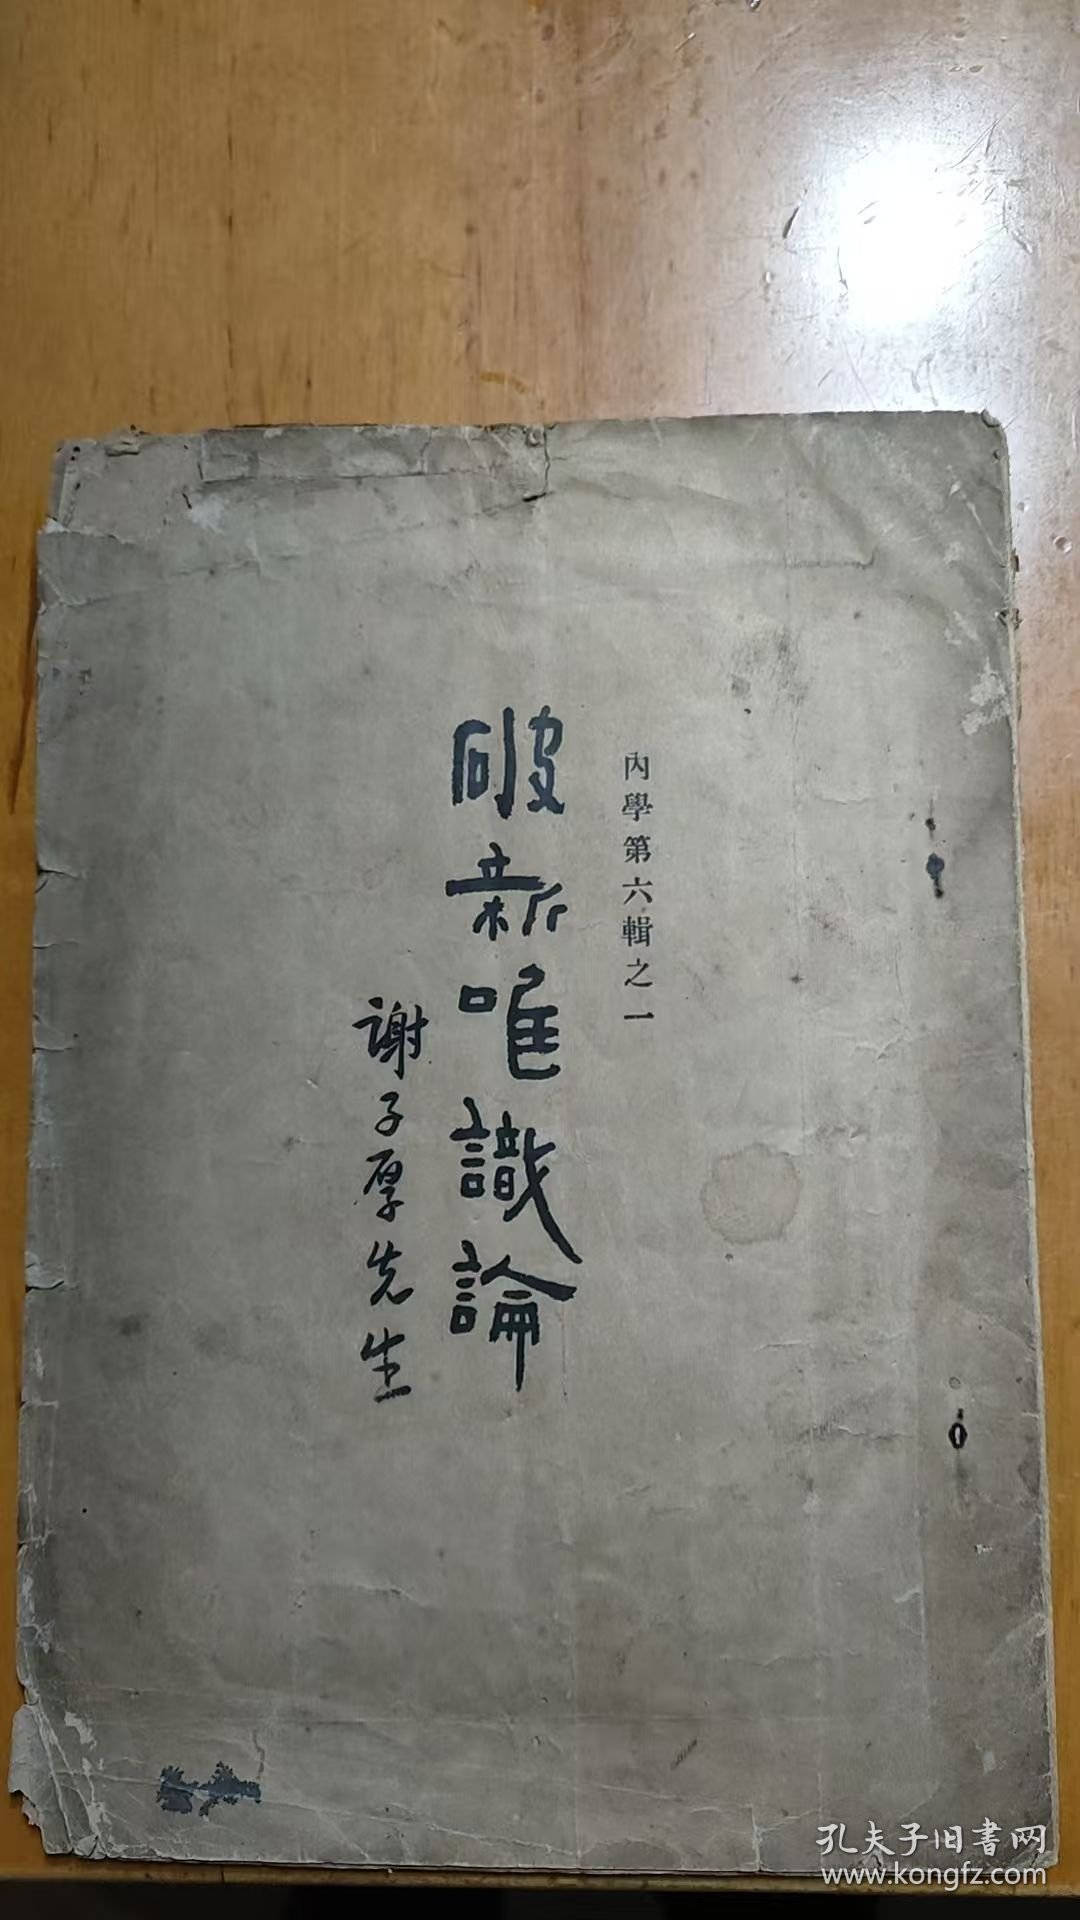 內學第六輯之一
破新唯識論
謝子厚先生
孔夫子旧書网
www.kongfz.com